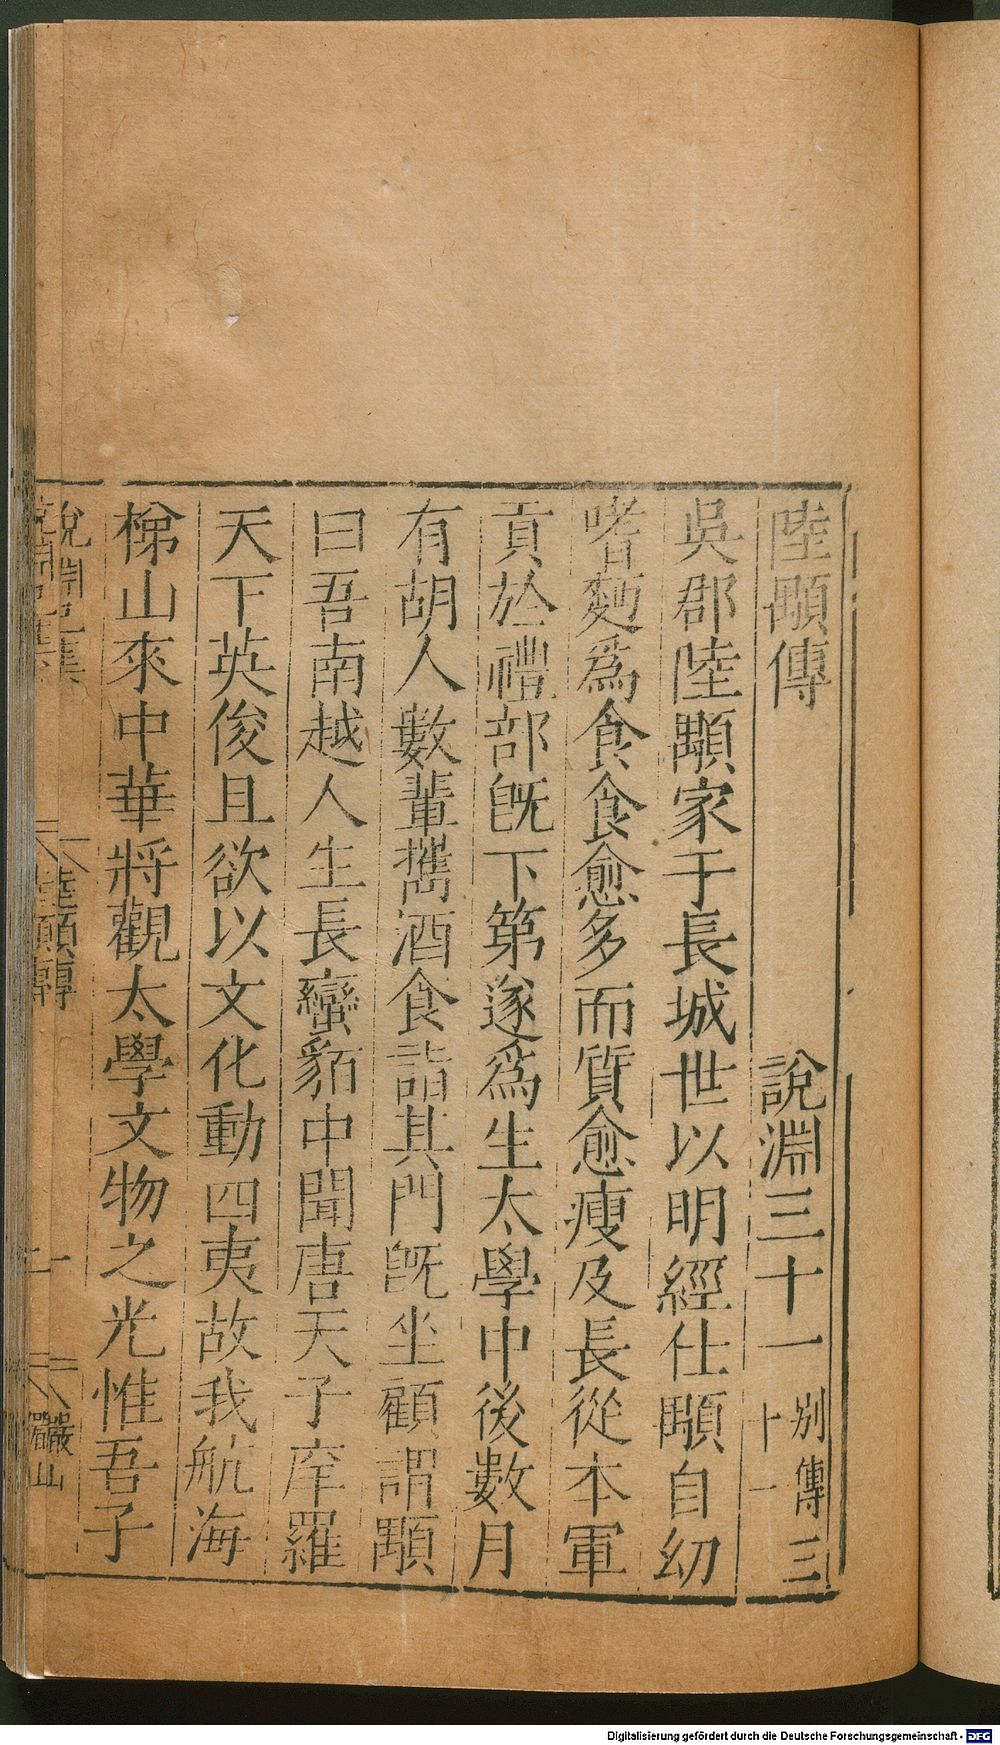 陸顒傳　說淵三十一　別傳三十一
吳郡陸顒家于長城世以明經仕顒自幼
嗜麪爲食食愈多而質愈瘦及長從本軍
貢於禮部旣下第遂爲生太學中後數月
有胡人數輩攜酒食詣其門旣坐顧謂顒
曰吾南越人生長蠻貊中聞唐天子庠羅
天下英俊且欲以文化動四夷故我航海
梯山來中華將觀太學文物之光惟吾子
說淵己集　陸顒傳　一　嚴山
Digitalisierung gefördert durch die Deutsche Forschungsgemeinschaft - DFG